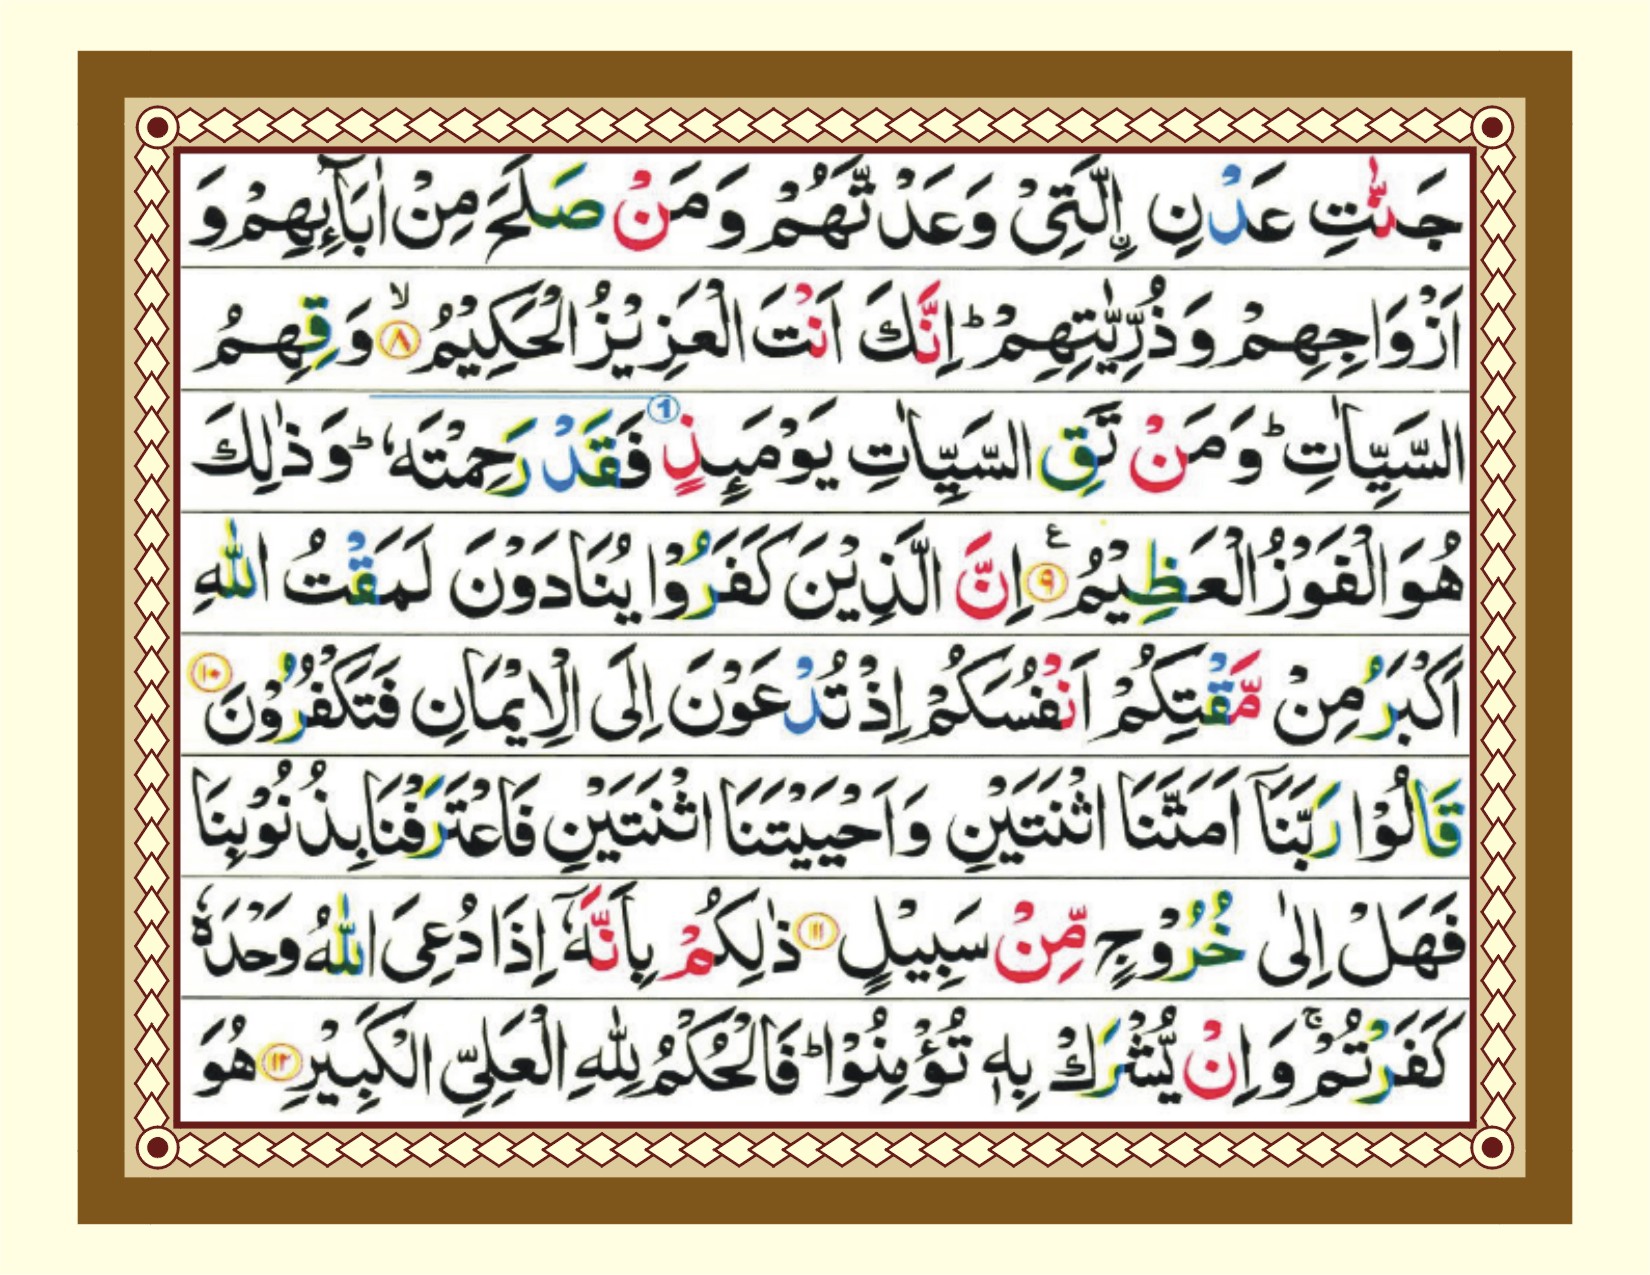 جَنّٰتِ عَدْنِ ۣالَّتِیْ وَعَدْتَّهُمْ وَمَنْ صَلَحَ مِنْ اٰبَآىِٕهِمْ وَ
اَزْوَاجِهِمْ وَذُرِّیّٰتِهِمْ ؕ اِنَّكَ اَنْتَ الْعَزِیْزُ الْحَكِیْمُ ۙ﴿۸﴾ وَقِهِمُ
السَّیِّاٰتِ ؕ وَمَنْ تَقِ السَّیِّاٰتِ یَوْمَىِٕذٍ ① فَقَدْ رَحِمْتَهٗ ؕ وَذٰلِكَ
هُوَ الْفَوْزُ الْعَظِیْمُ ﴿۹﴾ ع اِنَّ الَّذِیْنَ كَفَرُوْا یُنَادَوْنَ لَمَقْتُ اللّٰهِ
اَكْبَرُ مِنْ مَّقْتِكُمْ اَنْفُسَكُمْ اِذْ تُدْعَوْنَ اِلَی الْاِیْمَانِ فَتَكْفُرُوْنَ ﴿۱۰﴾
قَالُوْا رَبَّنَاۤ اَمَتَّنَا اثْنَتَیْنِ وَاَحْیَیْتَنَا اثْنَتَیْنِ فَاعْتَرَفْنَا بِذُنُوْبِنَا
فَهَلْ اِلٰی خُرُوْجٍ مِّنْ سَبِیْلٍ ﴿۱۱﴾ ذٰلِكُمْ بِاَنَّهٗۤ اِذَا دُعِیَ اللّٰهُ وَحْدَهٗ
كَفَرْتُمْ ۚ وَاِنْ یُّشْرَكْ بِهٖ تُؤْمِنُوْا ؕ فَالْحُكْمُ لِلّٰهِ الْعَلِیِّ الْكَبِیْرِ ﴿۱۲﴾ هُوَ